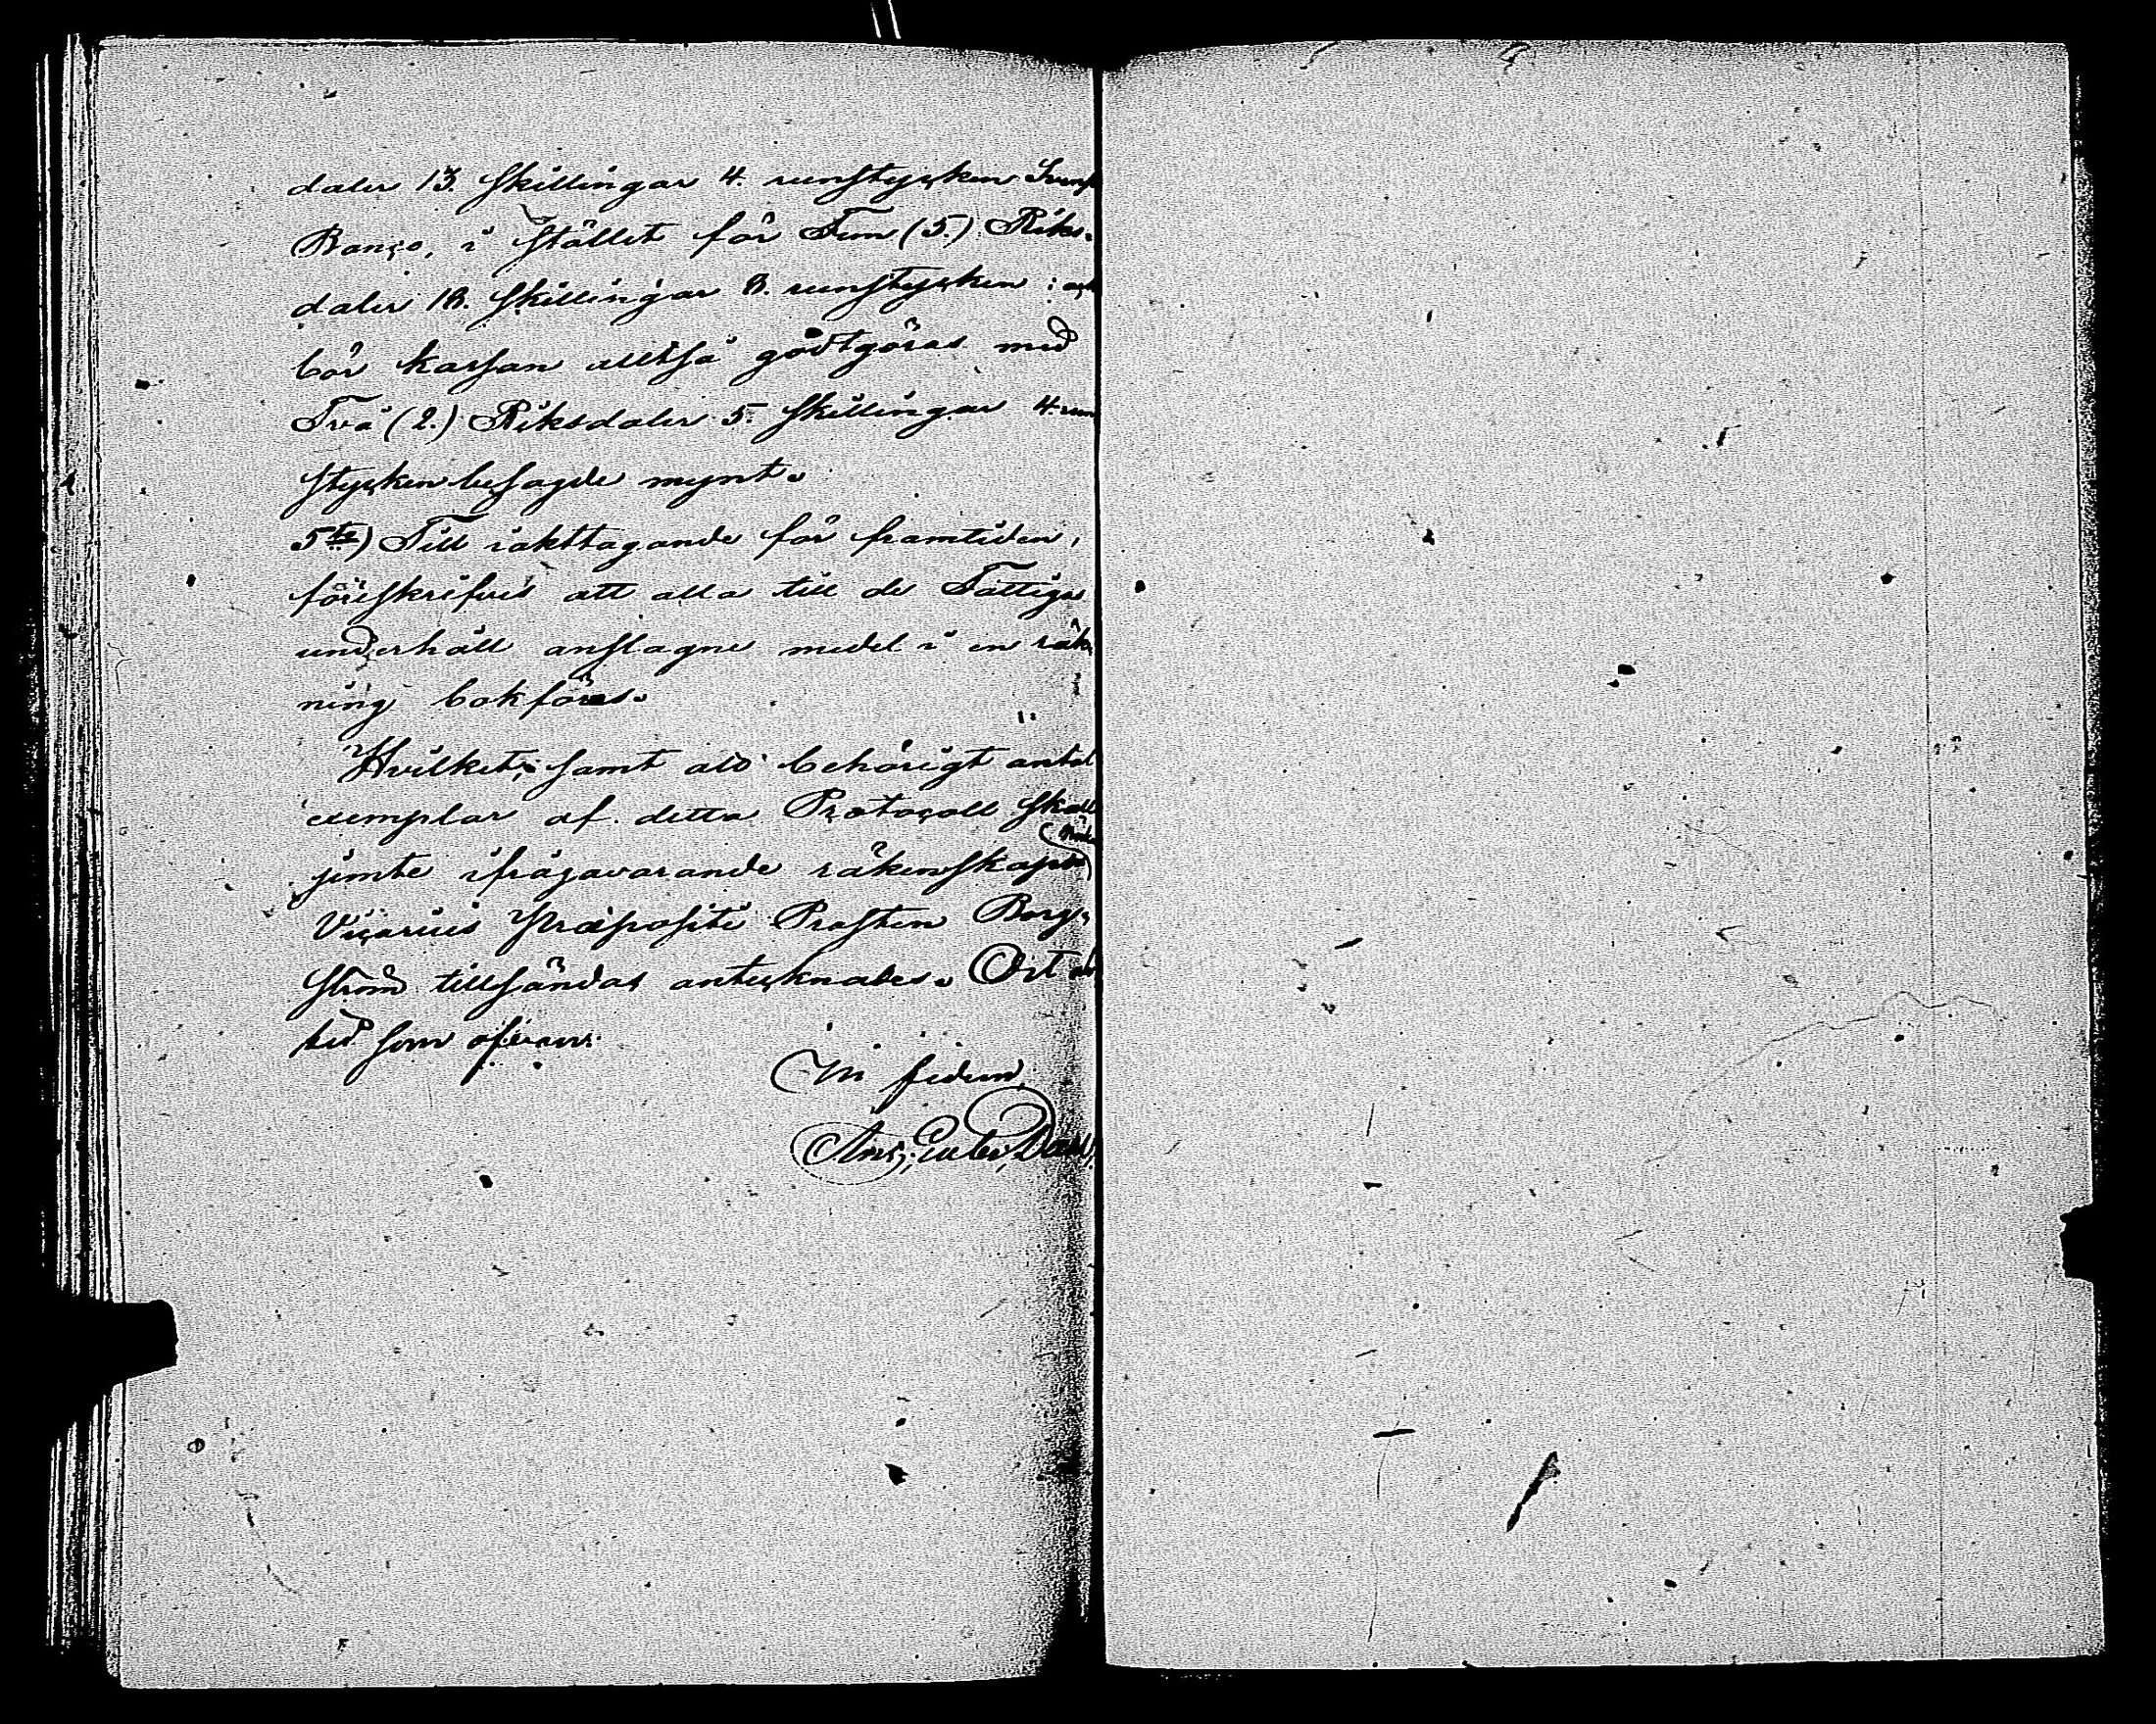 daler 13. skillingar 4. runstycken Svensk
Banco, i stället för Fem (5.) Riks-
daler 18. skillingar 8. runstycken: och
bör kassan alltså godtgöras med
Två (2.) Riksdaler 5. skillingar 4. run
stycken besagde mynt.
5te) Till iakttagande för framtiden,
föreskrifves att alla till de Fattigas
underhåll anslagne medel i en räk
ning bokföres.
Hvilket, samt att behörigt antal
exemplar af detta Protocoll skall
jemte ifrågavarande räkenskaper
Vicarius Præpositi Prosten Borg-
ström tillsändas antecknades. Ort och
tid som ofvan.
In fidem